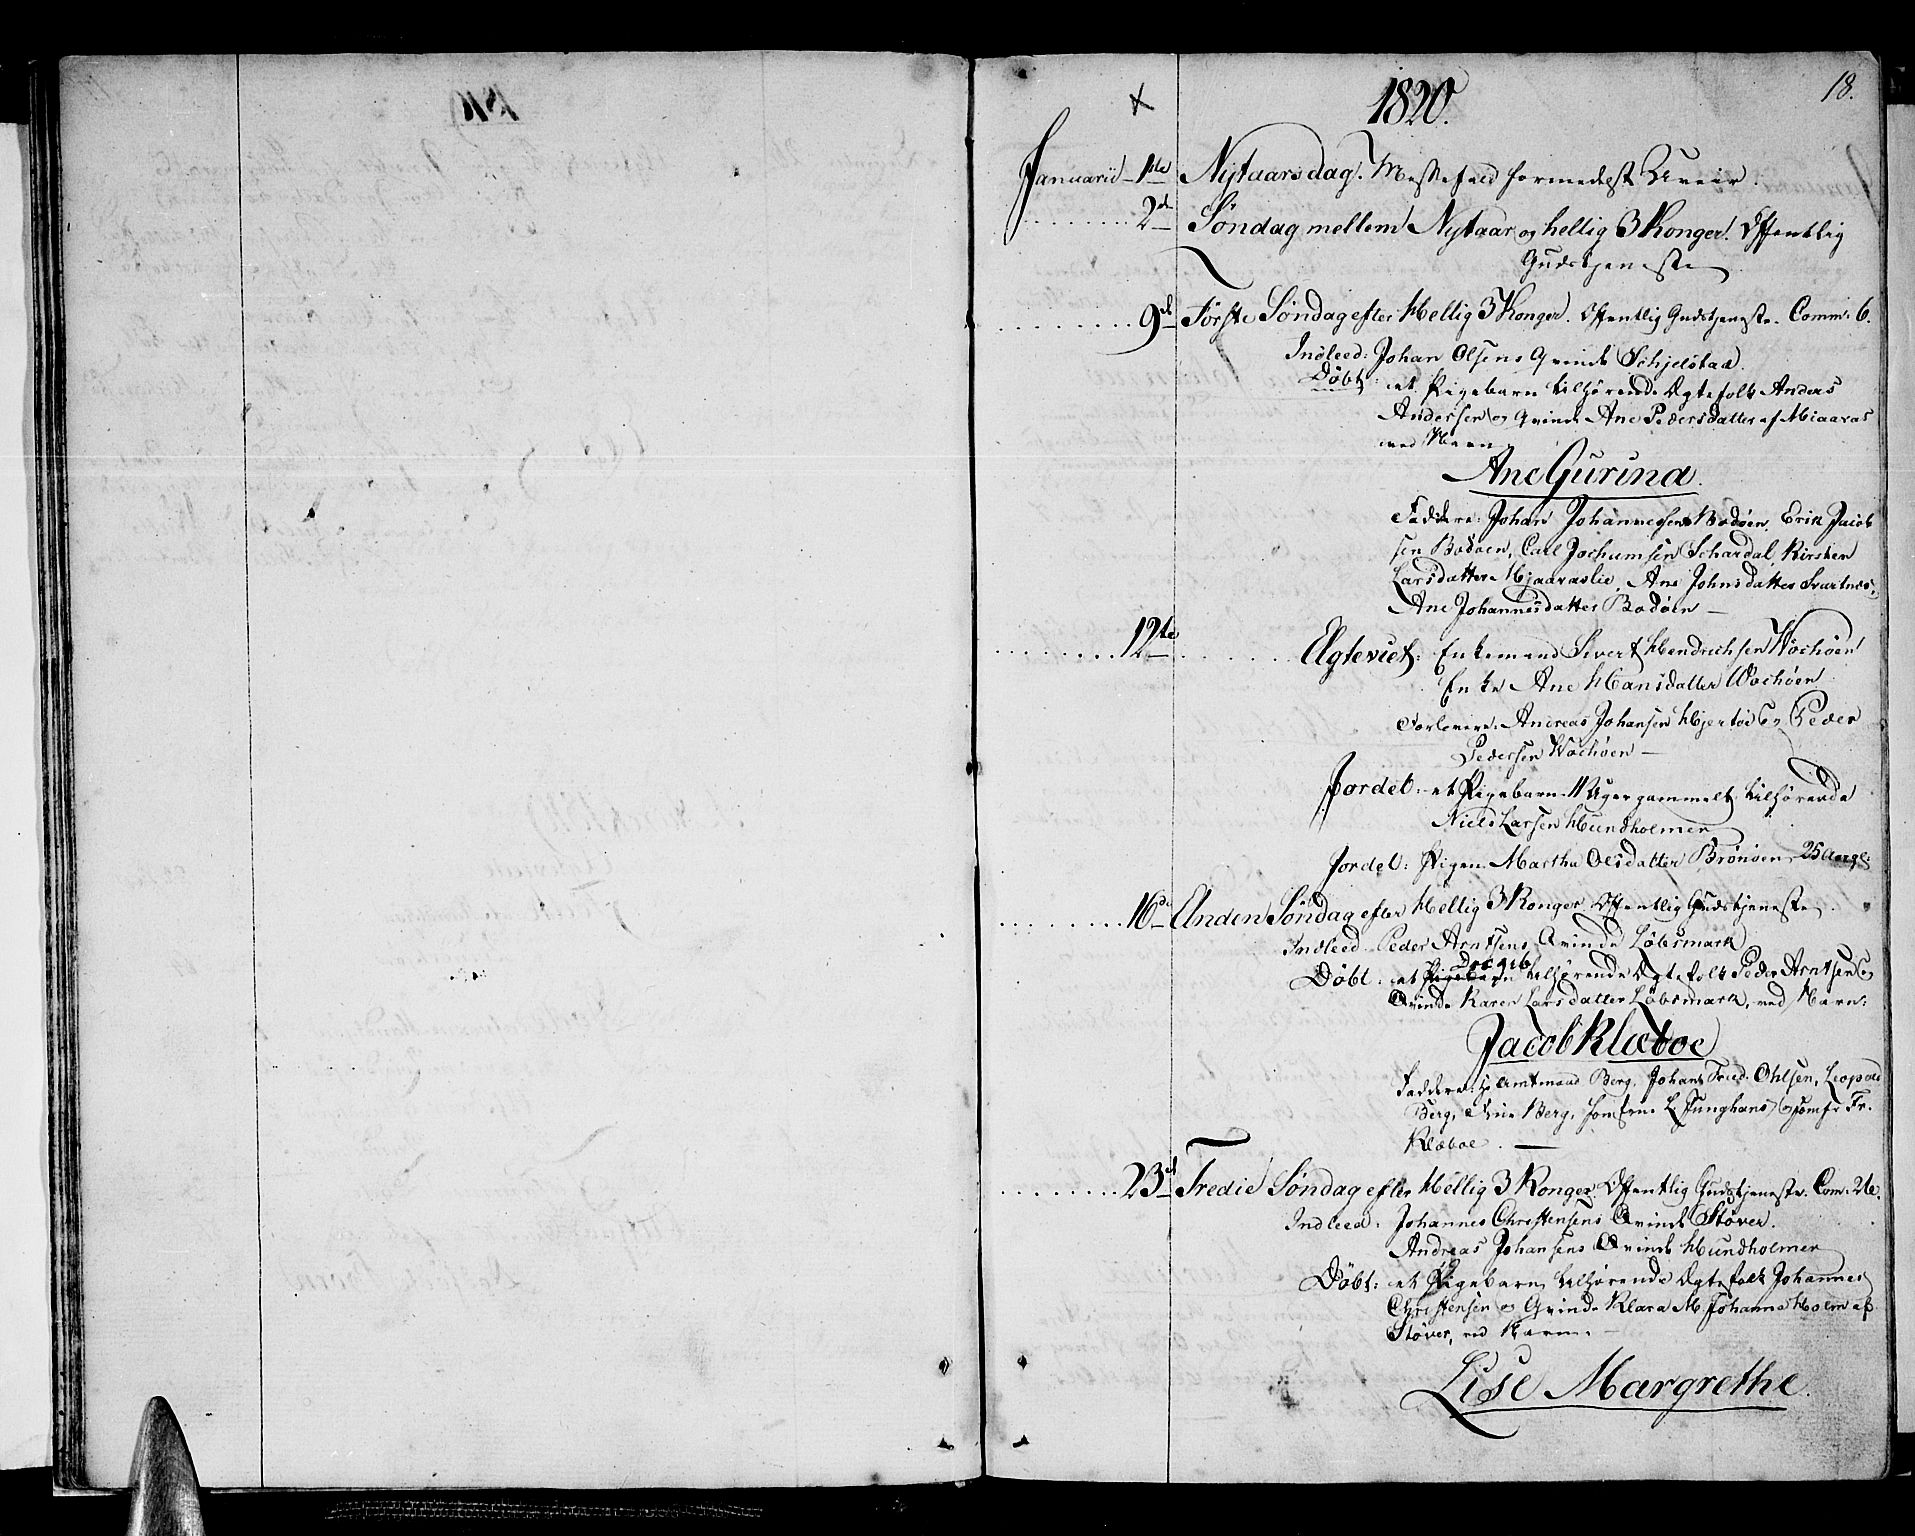 18.
1820.
Januarii 1ste Nytaarsdag. Messefald formedelst Uveir.
2d Søndag mellem Nytaar og hellig 3 Konger. Offentlig
Gudstjeneste
9d Første Søndag efter Hellig 3 Konger. Offentlig Gudstjeneste. Comm: 6.
Indleed: Johan Olsens Qvinde Schjelstad
Døbt: et Pigebarn tilhørende Ægtefolk Andeas
Andersen og Qvinde Ane Pedersdatter af Miaavas
ved Navn
Ane Gurina.
Faddere: Johan Johannesen Bodøen, Erik Jacob
sen Bodøen, Carl Jochumsen Schardal, Kirsten
Larsdatter Mjaavaslie, Ane Johnsdatter Svartnes,
Ane Johannesdatter Bodøen —
12te Ægteviet: Enkemand Sivert Hendrichsen Wochøen
Enke Ane Hansdatter Wochøen
Forlovere: Andreas Johansen Hjertøe og Peder
Pedersen Wochøen —
Jordet: et Pigebarn 11 Uger gammelt tilhørende
Niels Larsen Hundholmen
Jordet: Pigen Martha Olsdatter Brønøen 25 Aar gl:
16de Anden Søndag efter Hellig 3 Konger Offentlig Gudstjeneste.
Indleed Peder Arntsens Qvinde Løbsmark
Drengeb
Døbt: et Pigebarn tilhørende Ægtefolk Peder Arntsen og
Qvinde Karen Larsdatter Løbsmark, ved Navn:
Jacob Klæboe
Faddere: Hr Amtmand Berg, Johan Fried. Ohlsen, Leopold
Berg, Berg, Jomfrue L Junghans og Jomfr Fr.
Klæboe. —
23d Tredie Søndag efter Hellig 3 Konger. Offentlig Gudstjeneste. Com: 26.
Indleed: Johannes Christensens Qvinde Støver.
Andreas Johansens Qvinde Hundholmen
Døbt: et Pigebarn tilhørende Ægtefolk Johannes
Christensen og Qvinde Klara M Johanna Holm af
Støver, ved Navn. —
Lise Margrethe.